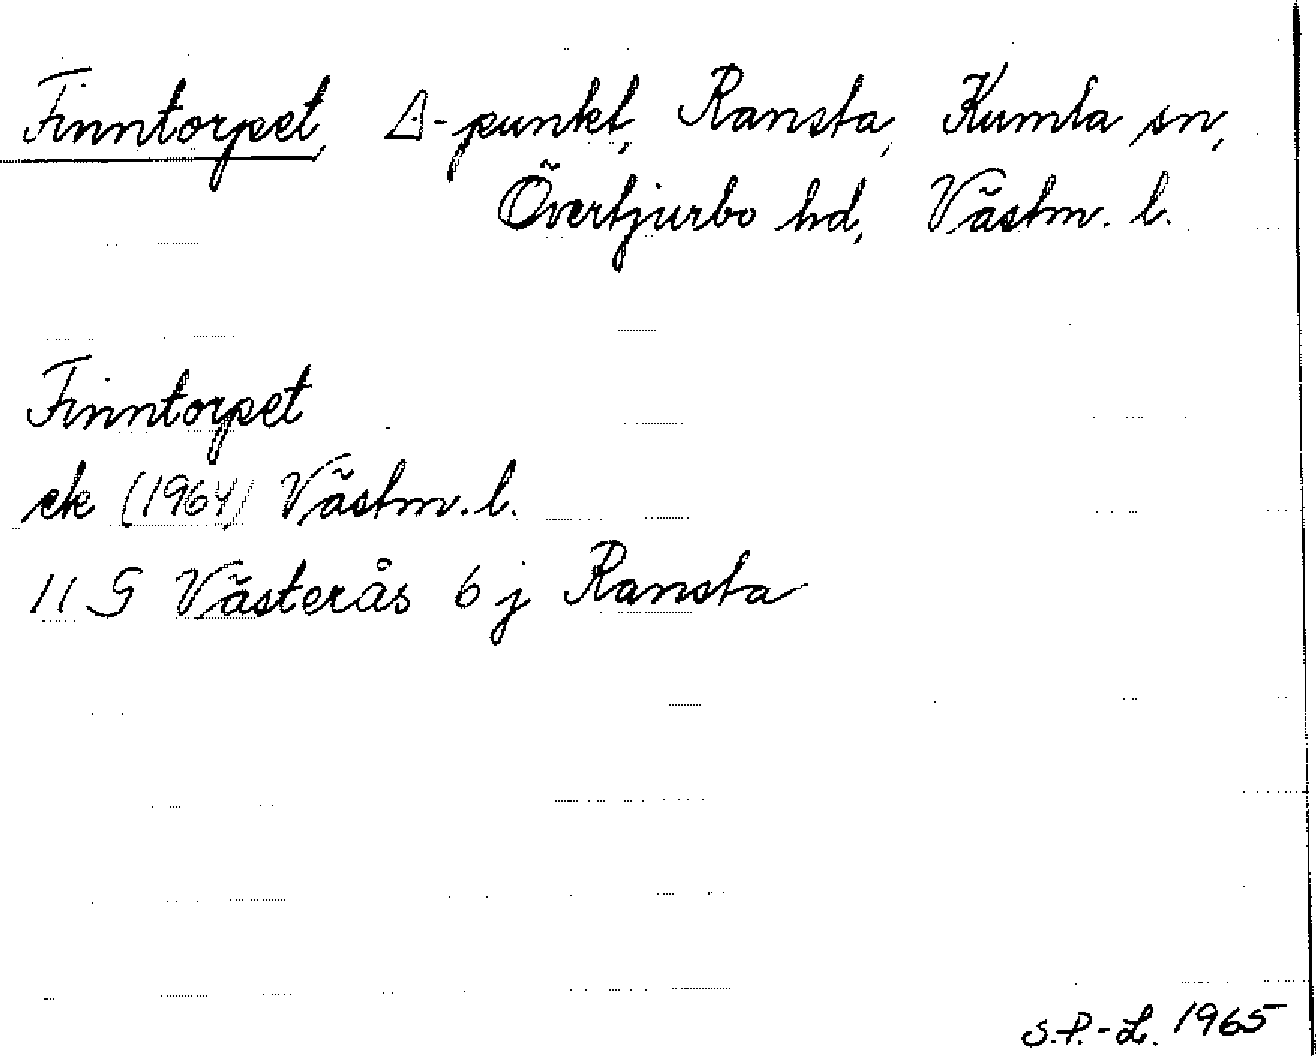 Finntorpet, Δ-punkt, Ransta, Kumla sn,
Övertjurbo hd, Västm. l.
Finntorpet
ek (1964) Västm. l.
11 G Västerås 6 j Ransta
S.P.-L. 1965